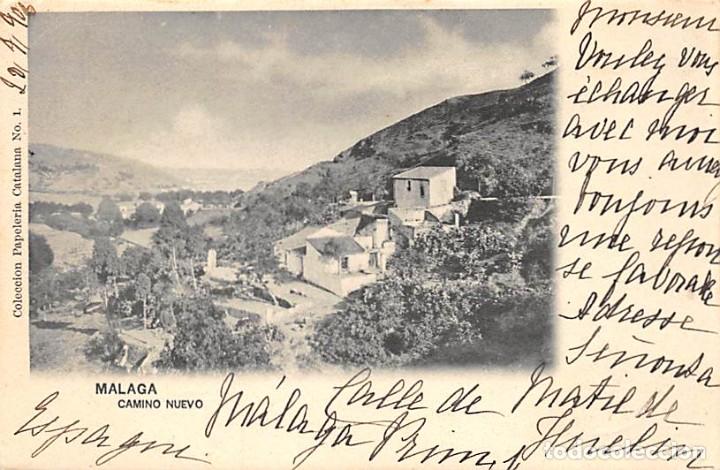 29 7 903
Coleccion Papeleria Catalana No. 1.
MALAGA
CAMINO NUEVO
Monsieur
Voulez vous
échanger
avec moi
vous aurez
toujours
une repon
se favorable
Adresse
Señorita
Matilde
Calle de
Málaga Prim, 1
Málaga
Espagne
todocoleccion